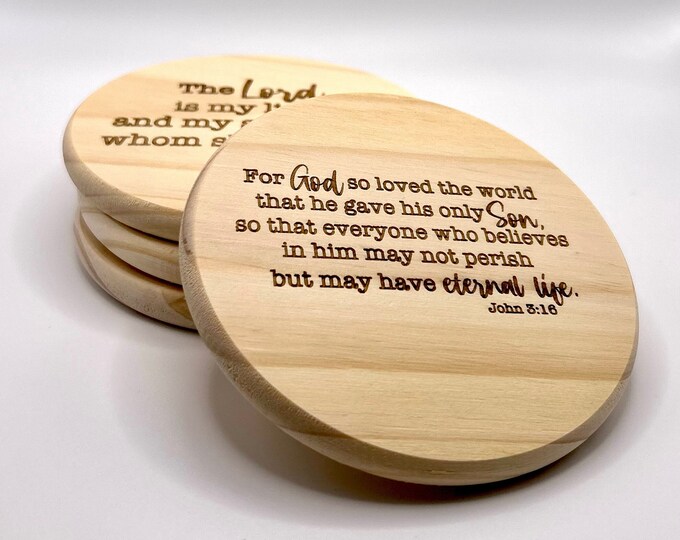 The Lord
is my
and my
whom
For God so loved the world
that he gave his only Son,
so that everyone who believes
in him may not perish
but may have eternal life.
John 3:16